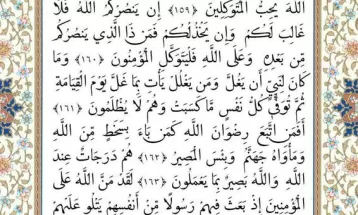 اللَّهَ يُحِبُّ الْمُتَوَكِّلِينَ ﴿١٥٩﴾ إِن يَنصُرْكُمُ اللَّهُ فَلَا
غَالِبَ لَكُمْ وَإِن يَخْذُلْكُمْ فَمَن ذَا الَّذِي يَنصُرُكُم
مِّن بَعْدِهِ وَعَلَى اللَّهِ فَلْيَتَوَكَّلِ الْمُؤْمِنُونَ ﴿١٦٠﴾ وَمَا
كَانَ لِنَبِيٍّ أَن يَغُلَّ وَمَن يَغْلُلْ يَأْتِ بِمَا غَلَّ يَوْمَ الْقِيَامَةِ
ثُمَّ تُوَفَّىٰ كُلُّ نَفْسٍ مَّا كَسَبَتْ وَهُمْ لَا يُظْلَمُونَ ﴿١٦١﴾
أَفَمَنِ اتَّبَعَ رِضْوَانَ اللَّهِ كَمَن بَاءَ بِسَخَطٍ مِّنَ اللَّهِ
وَمَأْوَاهُ جَهَنَّمُ وَبِئْسَ الْمَصِيرُ ﴿١٦٢﴾ هُمْ دَرَجَاتٌ عِندَ
اللَّهِ وَاللَّهُ بَصِيرٌ بِمَا يَعْمَلُونَ ﴿١٦٣﴾ لَقَدْ مَنَّ اللَّهُ عَلَى
الْمُؤْمِنِينَ إِذْ بَعَثَ فِيهِمْ رَسُولًا مِّنْ أَنفُسِهِمْ يَتْلُو عَلَيْهِمْ